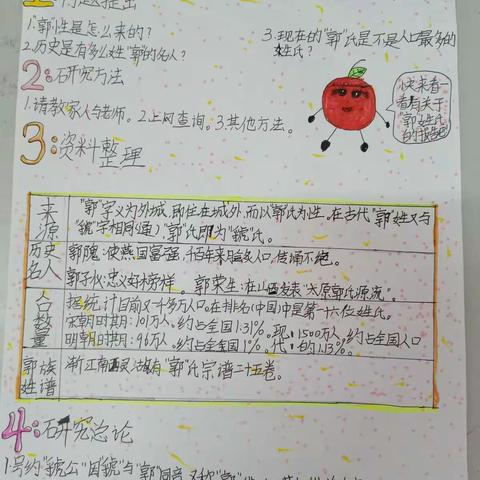 1:问题提出
1.“郭”性是怎么来的?
2.历史是有多么姓“郭”的名人?
3.现在的“郭”氏是不是人口最多的
姓氏?
2:研究方法
1.请教家人与老师。2.上网查询。3.其他方法。
快来看一
看有关于
“郭”姓氏
的报告吧
3:资料整理
来源
“郭”字义为外城,即住在城外,而以“郭”氏为性,在古代“郭”姓又与
“虢”字相同(通)“郭”氏即为“虢”氏。
历史名人
郭隗:使燕国富强,千百年来脍炙人口,传诵不绝。
郭子仪:忠义好榜样。 郭荣生:在山西发表“太原郭氏源流”。
人口数量
宋朝时期:101万人,约占全国1.31%。现:1500万人,约占全国人口
明朝时期:96万人,约占全国1%。代:的1.13%。
郭族姓谱
浙江南
有“郭”氏宗谱二十五卷。
4:研究总论